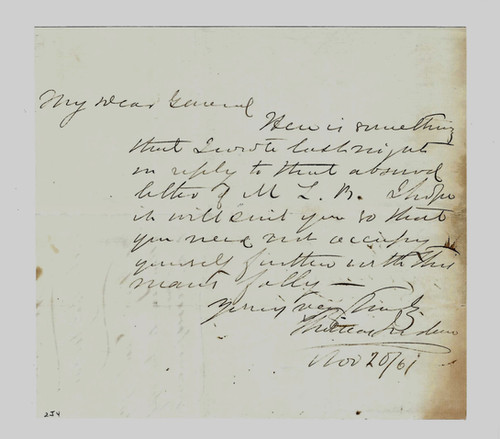 My Dear General
Here is something
that I wrote last night
in reply to that absurd
letter of M L. B. I hope
it will suit you so that
you need not occupy
yourself further with this
man's folly —
Yours very truly
Nov 20/61
234